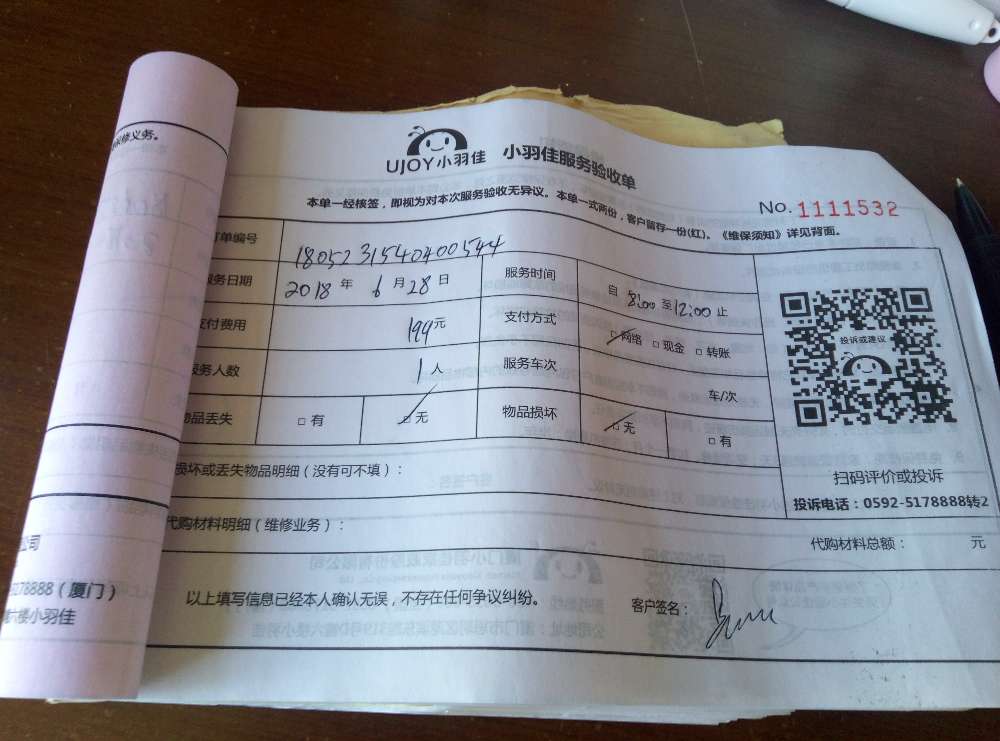 UJOY小羽佳 小羽佳服务验收单
本单一经核签，即视为对本次服务验收无异议。本单一式两份，客户留存一份(红)。《维保须知》详见背面。
No. 1111532
单编号 1805231540400544
务日期 2018 年 6 月 28 日 服务时间 自 8:00 至 12:00 止
支付费用 199元 支付方式 □网络 □现金 □转账
务人数 1人 服务车次 车/次
物品丢失 □有 □无 物品损坏 □无 □有
投诉或建议
扫码评价或投诉
投诉电话：0592-5178888转2
损坏或丢失物品明细（没有可不填）：
代购材料明细（维修业务）：
代购材料总额： 元
以上填写信息已经本人确认无误，不存在任何争议纠纷。 客户签名：
保修义务。
公司
5178888（厦门）
六楼小羽佳